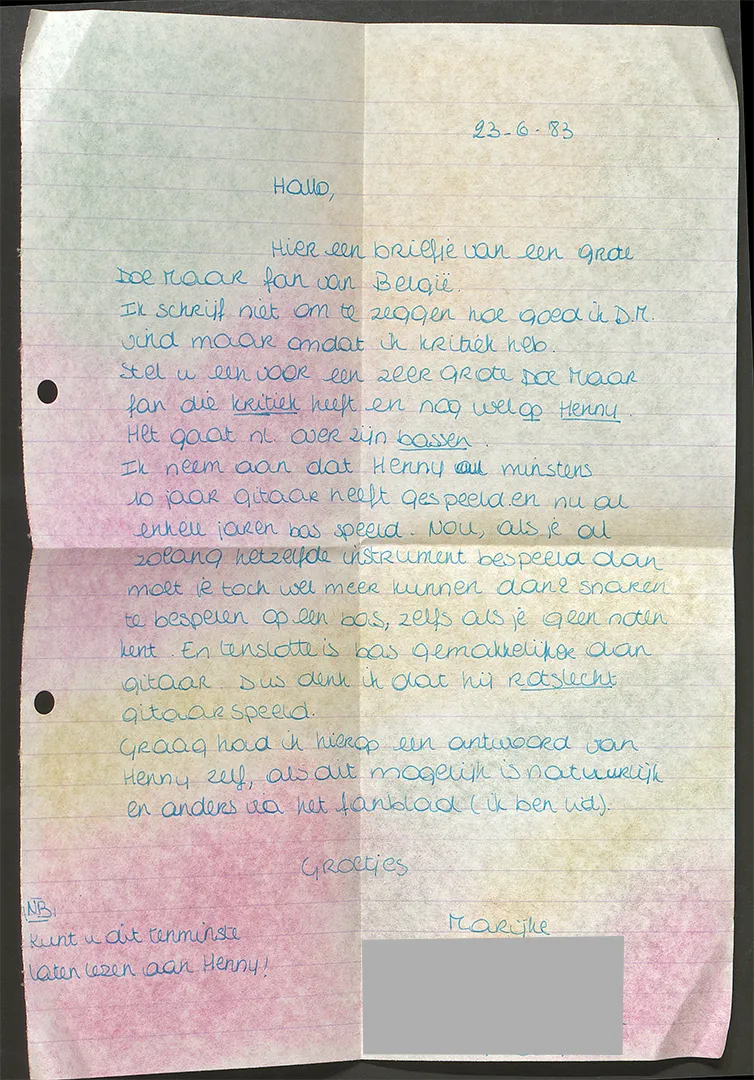 23-6-83
Hallo,
Hier een briefje van een grote
Doe Maar fan van België.
Ik schrijf niet om te zeggen hoe goed ik D.M.
vind maar omdat ik kritiek heb.
Stel u een voor een zeer grote Doe Maar
fan die kritiek heeft en nog wel op Henny.
Het gaat nl. over zijn bassen.
Ik neem aan dat Henny al minstens
10 jaar gitaar heeft gespeeld en nu al
enkele jaren bas speeld. Nou, als je al
zolang hetzelfde instrument bespeeld dan
moet je toch wel meer kunnen dan 2 snaren
te bespelen op een bas, zelfs als je geen noten
kent. En tenslotte is bas gemakkelijker dan
gitaar. Dus denk ik dat hij rotslecht
gitaar speeld.
Graag had ik hierop een antwoord van
Henny zelf, als dit mogelijk is natuurlijk
en anders via het fanblad (ik ben lid).
Groetjes
Marijke
NB.
Kunt u dit tenminste
laten lezen aan Henny!